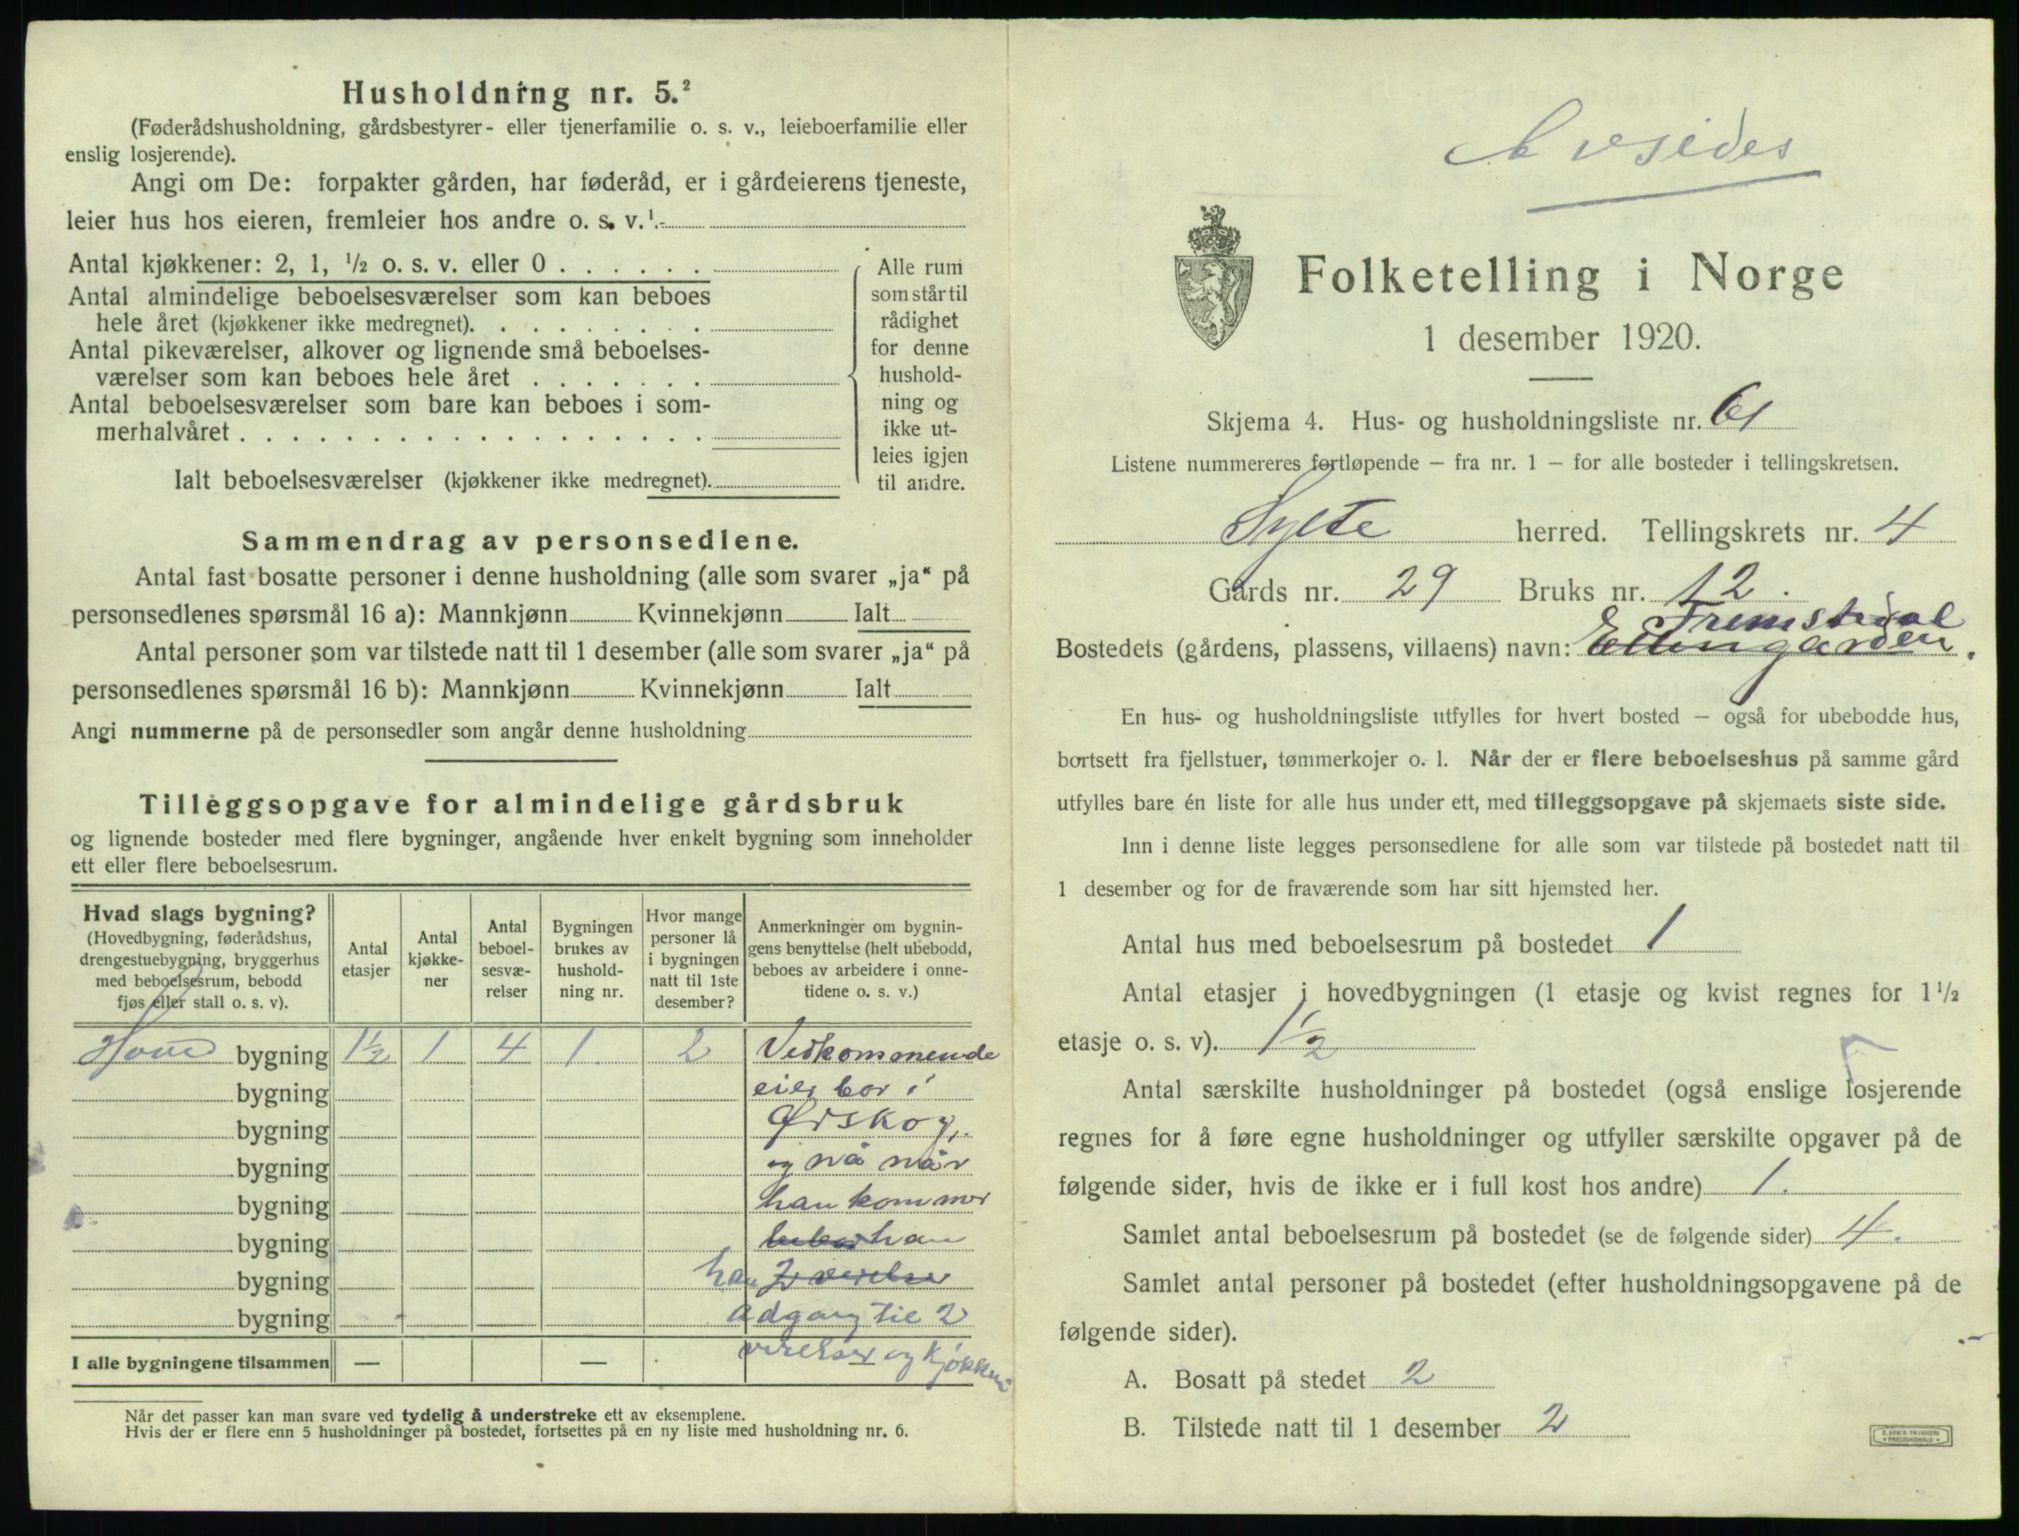 Husholdning nr. 5.²
(Føderådshusholdning, gårdsbestyrer- eller tjenerfamilie o. s. v., leieboerfamilie eller
enslig losjerende).
Angi om De: forpakter gården, har føderåd, er i gårdeierens tjeneste,
leier hus hos eieren, fremleier hos andre o. s. v.¹
Antal kjøkkener: 2, 1, ½ o. s. v. eller 0 . . . . . .
Antal almindelige beboelsesværelser som kan beboes
hele året (kjøkkener ikke medregnet). . . . . . . . .
Antal pikeværelser, alkover og lignende små beboelses-
værelser som kan beboes hele året . . . . . . .
Antal beboelsesværelser som bare kan beboes i som-
merhalvåret . . . . . . . . . . . . . . . . . .
Ialt beboelsesværelser (kjøkkener ikke medregnet).
Alle rum
som står til
rådighet
for denne
hushold-
ning og
ikke ut-
leies igjen
til andre.
Sammendrag av personsedlene.
Antal fast bosatte personer i denne husholdning (alle som svarer „ja“ på
personsedlenes spørsmål 16 a): Mannkjønn Kvinnekjønn Ialt
Antal personer som var tilstede natt til 1 desember (alle som svarer „ja“ på
personsedlenes spørsmål 16 b): Mannkjønn Kvinnekjønn Ialt
Angi nummerne på de personsedler som angår denne husholdning
Tilleggsopgave for almindelige gårdsbruk
og lignende bosteder med flere bygninger, angående hver enkelt bygning som inneholder
ett eller flere beboelsesrum.
Hvad slags bygning?
(Hovedbygning, føderådshus,
drengestuebygning, bryggerhus
med beboelsesrum, bebodd
fjøs eller stall o. s. v).
Antal
etasjer
Antal
kjøkke-
ner
Antal
beboel-
sesvæ-
relser
Bygningen
brukes av
hushold-
ning nr.
Hvor mange
personer lå
i bygningen
natt til 1ste
desember?
Anmerkninger om bygnin-
gens benyttelse (helt ubebodd,
beboes av arbeidere i onne-
tidene o. s. v.)
Hoved bygning 1½ 1 4 1. 2 Vedkommende
bygning eier bor i
bygning Ørskog,
bygning og nå når
bygning han kommer
bygning bebor han
bygning har 2 værelser
bygning adgang til 2
I alle bygningene tilsammen — — værelser og kjøkken
Når det passer kan man svare ved tydelig å understreke ett av eksemplene.
Hvis der er flere enn 5 husholdninger på bostedet, fortsettes på en ny liste med husholdning nr. 6.
Folketelling i Norge
1 desember 1920.
Skjema 4. Hus- og husholdningsliste nr. 61
Listene nummereres fortløpende — fra nr. 1 — for alle bosteder i tellingskretsen.
Sylte herred. Tellingskrets nr. 4
Gårds nr. 29 Bruks nr. 12.
Fremstedal
Bostedets (gårdens, plassens, villaens) navn: Ellingarden.
En hus- og husholdningsliste utfylles for hvert bosted — også for ubebodde hus,
bortsett fra fjellstuer, tømmerkojer o. l. Når der er flere beboelseshus på samme gård
utfylles bare én liste for alle hus under ett, med tilleggsopgave på skjemaets siste side.
Inn i denne liste legges personsedlene for alle som var tilstede på bostedet natt til
1 desember og for de fraværende som har sitt hjemsted her.
Antal hus med beboelsesrum på bostedet 1
Antal etasjer i hovedbygningen (1 etasje og kvist regnes for 1½
etasje o. s. v). 1½
Antal særskilte husholdninger på bostedet (også enslige losjerende
regnes for å føre egne husholdninger og utfyller særskilte opgaver på de
følgende sider, hvis de ikke er i full kost hos andre) 1.
Samlet antal beboelsesrum på bostedet (se de følgende sider) 4.
Samlet antal personer på bostedet (efter husholdningsopgavene på de
følgende sider).
A. Bosatt på stedet 2
B. Tilstede natt til 1 desember 2